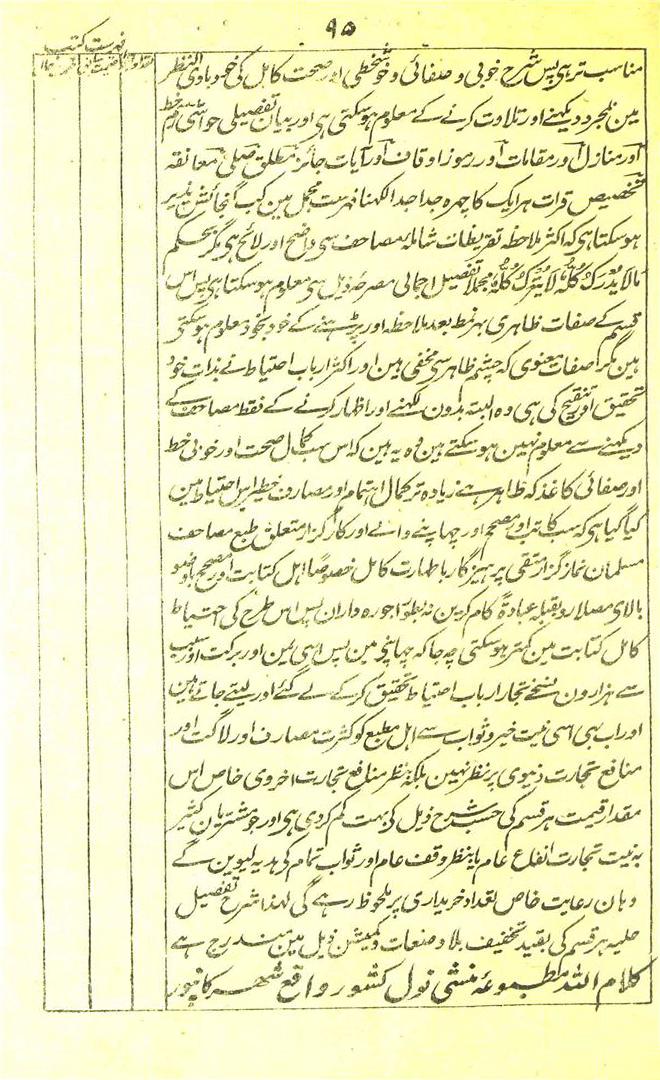 ۹۵
فہرست کتب
مناسب تر ہی پس شرح خوبی و صفائی و خوشخطی اور صحت کامل کی خود بادی النظر
مین بمجرد دیکھنے اور تلاوت کرنے کے معلوم ہوسکتی ہی اور بیان تفصیلی حواشی رسم خط
اور منازل اور مقامات اور رموز اوقاف اور آیات جائز مطلق صلی معانقہ
تخصیص قرات ہر ایک کا چہرہ جدا جدا لکھنا فہرست مجمل مین کب گنجائش پذیر
ہوسکتا ہی کہ اکثر ملاحظہ تقریظات شاملہ مصاحف سی واضح اور لائح ہی مگر بحکم
مالا یدرک کلہ لا یترک کلہ مجملا تفصیل اجمالی مصرحہ ذیل ہی معلوم ہوسکتا ہی پس اس
قسم کے صفات ظاہری بہر نمط بعد ملاحظہ اور پڑہنے کے خود بخود معلوم ہوسکتی
ہین مگر صفات معنوی کہ چشم ظاہر سی مخفی ہین اور اکثر ارباب احتیاط نے بذات خود
تحقیق اور تنقیح کی ہی وہ البتہ بدون لکھنے اور اظہار کرنے کے فقط مصاحف کے
دیکھنے سے معلوم نہین ہوسکتے ہین وہ یہ ہین کہ اس سب کمال صحت اور خوبی خط
اور صفائی کاغذ کہ ظاہر ہے زیادہ تر کمال اہتمام اور مصارف خطیر اس احتیاط مین
کیا گیا ہی کہ سب کاتب اور مصحح اور چھاپنے والے اور کارگزار متعلق طبع مصاحف
مسلمان نماز گزار متقی پرہیزگار با طہارت کامل خصوصا اہل کتابت اور مصحح باوضو
بالای مصلا رو بقبلہ عبادۃً کام کرین نہ بطور اجورہ داران پس اس طرح کی احتیاط
کامل کتابت مین کمتر ہوسکتی چہ جا کہ چھاپی مین پس اسی یمن اور برکت اور سبب
سے ہزارون نسخے تجار ارباب احتیاط تحقیق کر کے لے گئے اور لیتے جاتے ہین
اور اب بہی اسی نیت خیر و ثواب سے اہل مطبع کو کثرت مصارف اور لاگت اور
منافع تجارت دنیوی پر نظر نہین بلکہ بنظر منافع تجارت اخروی خاص اس
مقدار قیمت ہر قسم کی حسب شرح ذیل کی بہت کم کر دی ہی اور جو مشتریان کثیر
بہ نیت تجارت انفاع عام یا بنظر وقف عام اور ثواب تمام کی ہدیہ لیوین گے
وہان رعایت خاص تعداد خریداری پر ملحوظ رہے گی لہذا شرح تفصیل
ہر قسم کی بقید تخفیف بلا وضعات و کمیشن ذیل مین مندرج ہے
کلام اللہ مطبوعۂ منشی نول کشور واقع شہر کانپور